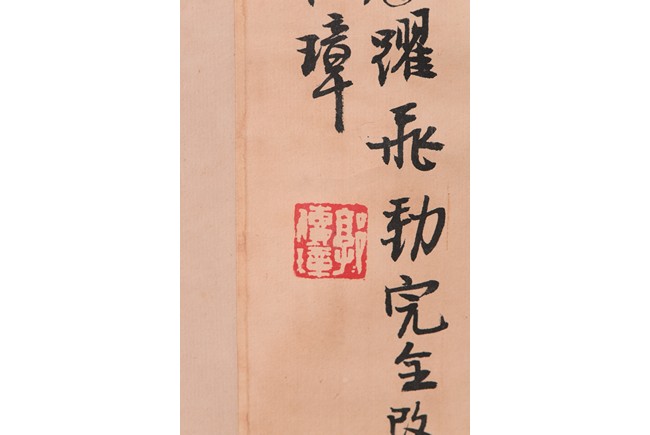 躍飛勁完全改
璋
郭傳璋